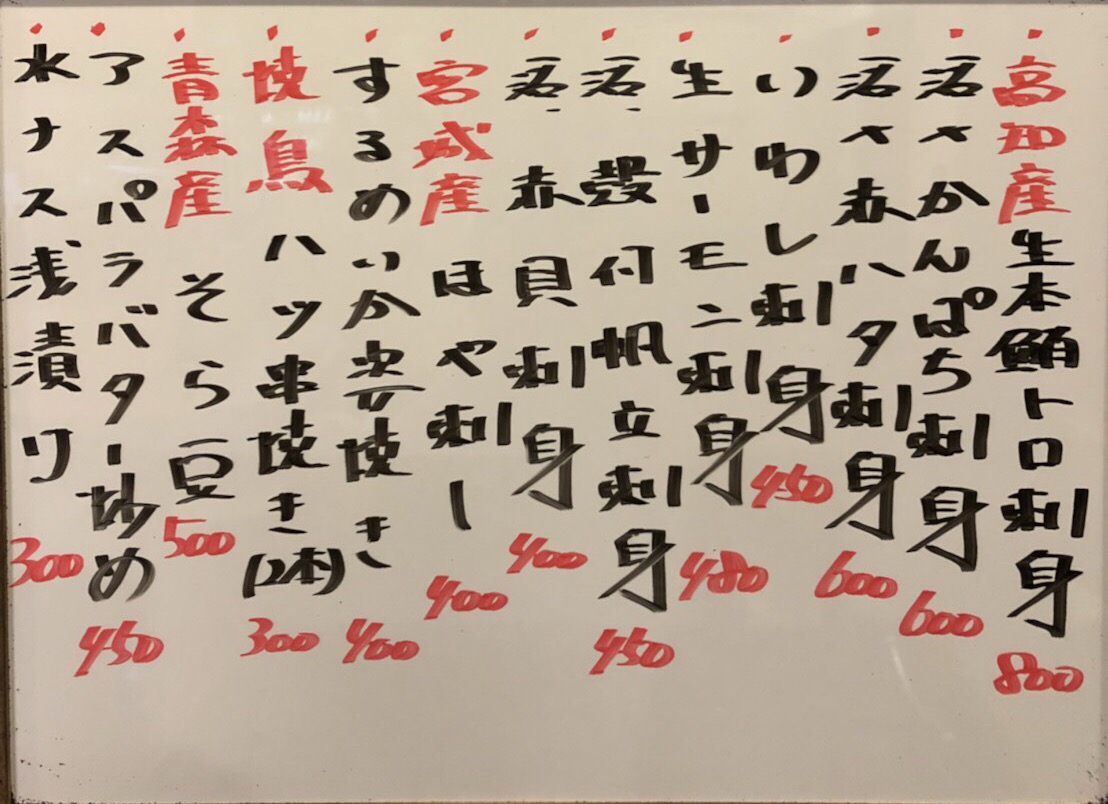 高知産 生本鮪トロ刺身 800
活〆かんぱち刺身 600
活〆赤ハタ刺身 600
いわし刺身 450
生サーモン刺身 480
活、殻付帆立刺身 450
活、赤貝刺身 400
宮城産 ほや刺し 400
するめいか姿焼き 400
焼鳥 ハツ串焼き(2本) 300
青森産 そら豆 500
アスパラバター炒め 450
水ナス浅漬け 300